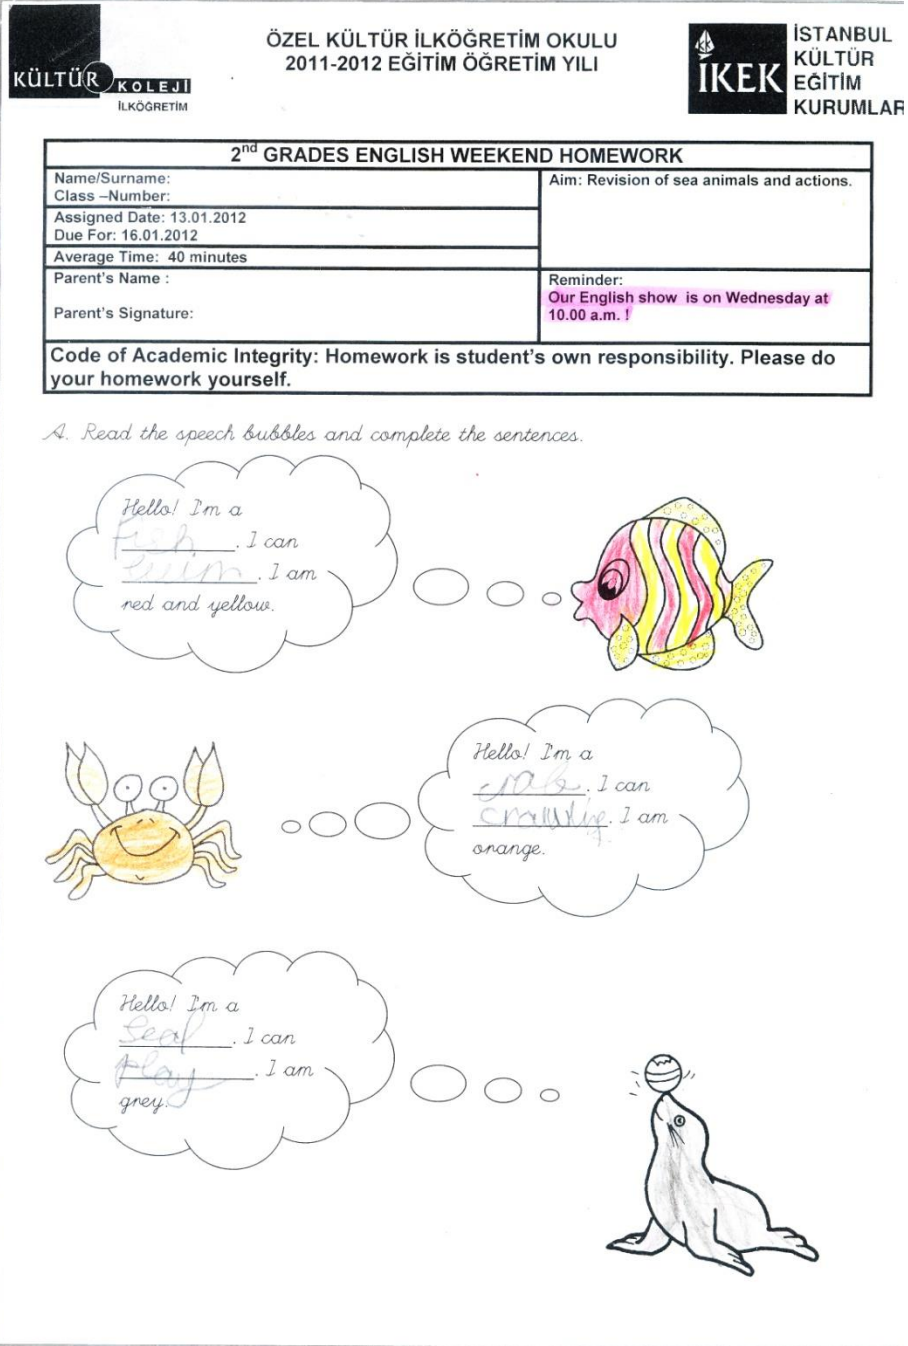 KÜLTÜR
KOLEJİ
İLKÖĞRETİM
ÖZEL KÜLTÜR İLKÖĞRETİM OKULU
2011-2012 EĞİTİM ÖĞRETİM YILI
İKEK
İSTANBUL
KÜLTÜR
EĞİTİM
KURUMLAR
2nd GRADES ENGLISH WEEKEND HOMEWORK
Name/Surname:
Class –Number:
Assigned Date: 13.01.2012
Due For: 16.01.2012
Average Time: 40 minutes
Parent's Name :
Parent's Signature:
Aim: Revision of sea animals and actions.
Reminder:
Our English show is on Wednesday at
10.00 a.m. !
Code of Academic Integrity: Homework is student's own responsibility. Please do
your homework yourself.
A. Read the speech bubbles and complete the sentences.
Hello! I'm a
fish. I can
swim. I am
red and yellow.
Hello! I'm a
crab. I can
. I am
orange.
Hello! I'm a
seal. I can
play. I am
grey.